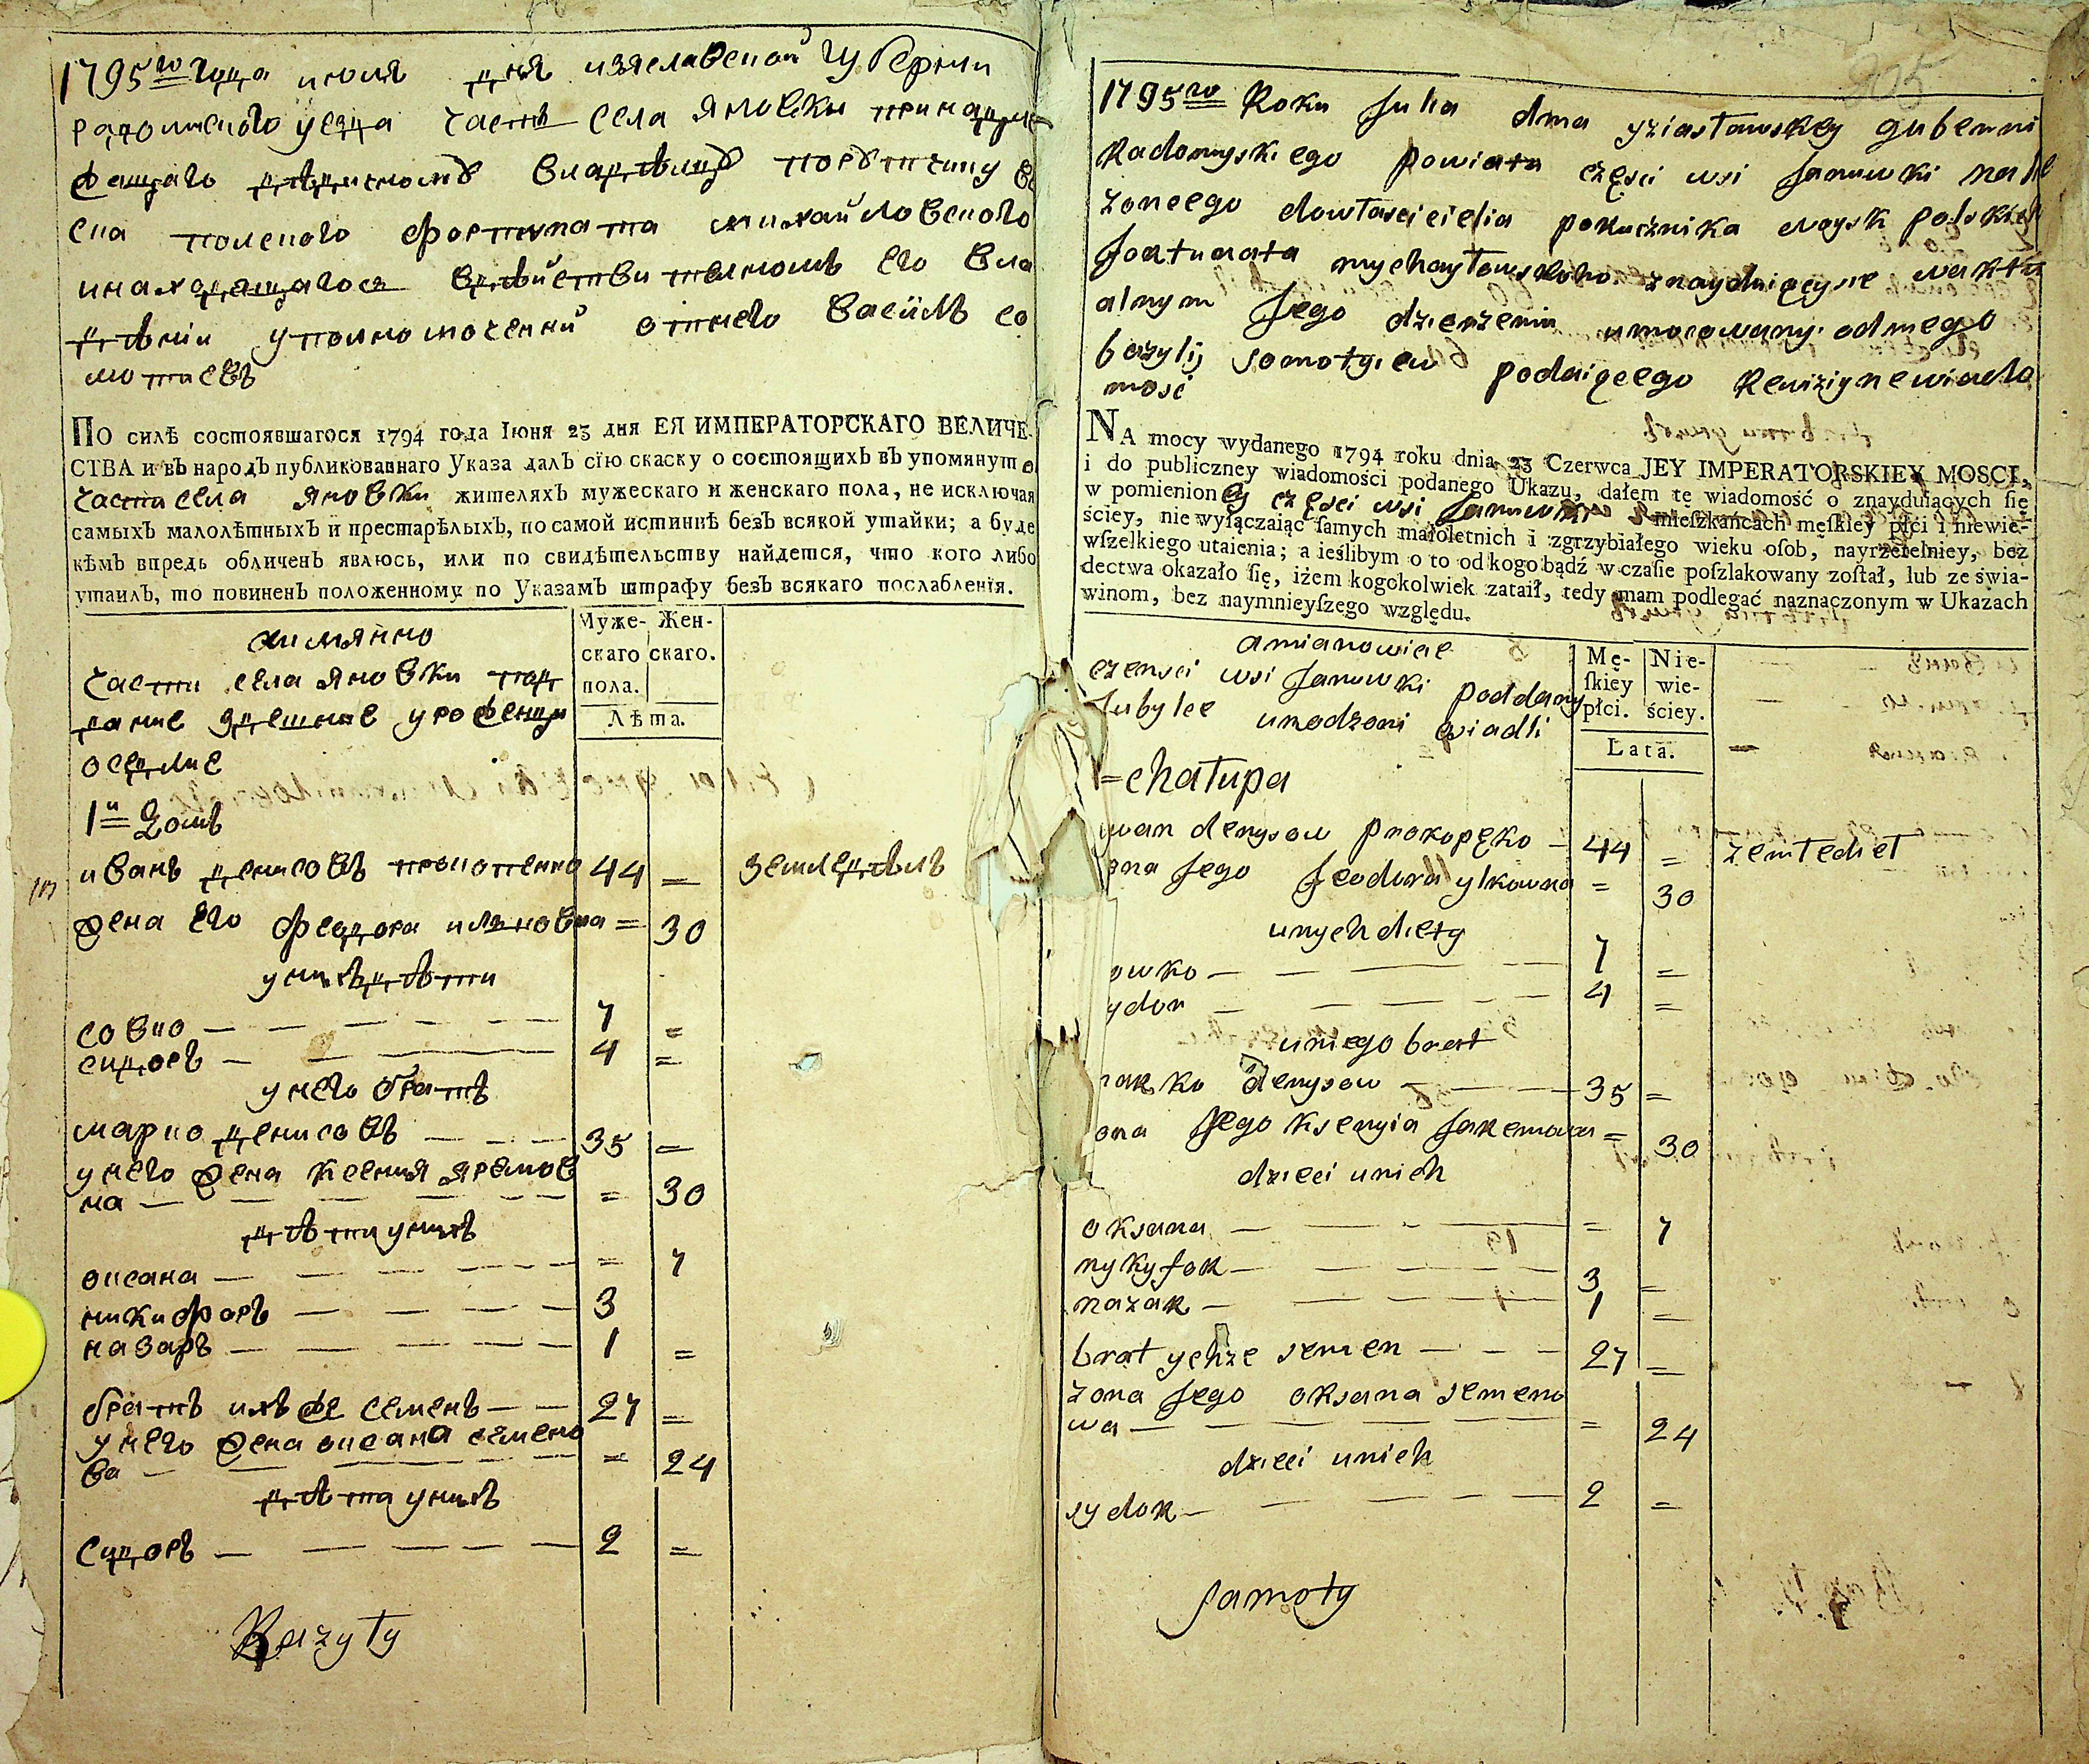 1795го года июля дня изяславской губерни
радомыского уезда часть села яновки принадле
жащаго дѣдичномъ владѣлцу порутчику во
ска полского фортуната михайловского
инаходящагося вдѣйствителномъ его вла
дѣнии уполномоченный отнего василь со
мотиевъ
По силѣ состоявшагося 1794 года Іюня 23 дня ЕЯ ИМПЕРАТОРСКАГО ВЕЛИЧЕ-
СТВА и въ народъ публикованнаго Указа далъ сїю скаску о состоящихъ въ упомянутой
части села яновки жителяхъ мужескаго и женскаго пола, не исключая
самыхъ малолѣтныхъ и престарѣлыхъ, по самой истиннѣ безъ всякой утайки; а буде
кѣмъ впредь обличенъ явлюсь, или по свидѣтельству найдется, что кого либо
утаилъ, то повиненъ положенному по Указамъ штрафу безъ всякаго послабленїя.
Муже- Жен-
скаго скаго.
пола.
Лѣта.
аимянно
части села яновки под
дание здешние уроженци
оседлие
1й домъ
иванъ денисовъ прокопенко 44 = земледѣлъ
жена его федора илковна = 30
унихъ дѣти
совко — — — — — 7 =
сидоръ — — — 4 =
унего братъ
марко денисовъ — — — 35 =
унего жена ксения яремов
на — — — — — = 30
дѣти унихъ
оксана — — — — — = 7
никифоръ — — — — 3
назаръ — — — — — 1 =
братъ ихъ же семенъ — — 27 =
унего жена оксана семено
ва — — — — — = 24
дѣта унихъ
сидоръ — — — — — 2 =
Bazyly
1795го Roku Julia dnia yziasławskey gubernii
Radomyskiego powiatu części wsi Janowki nale
żonego dowłaściciela porucznika woysk polskich
fortunata mychayłowskoho znayduiącysie waktu
alnym Jego dzierżeniu umocowany odniego
bazylij somotyiew podaiącego Rewiziynewiado
mość
Na mocy wydanego 1794 roku dnia 23 Czerwca JEY IMPERATORSKIEY MOSCI,
i do publiczney wiadomości podanego Ukazu, dałem tę wiadomość o znayduiących ſię
w pomienioney części wsi Janowki mieſzkańcach męſkiey płci i niewie-
ściey, nie wyłączaiąc ſamych małoletnich i zgrzybiałego wieku oſob, nayrzetelniey, bez
wſzelkiego utaienia; a ieślibym o to od kogo bądź w czaſie poſzlakowany zoſtał, lub ze świa-
dectwa okazało ſię, iżem kogokolwiek zataił, tedy mam podlegać naznaczonym w Ukazach
winom, bez naymnieyſzego względu.
Mę- Nie-
ſkiey wie-
płci. ściey.
Lata.
amianowicie
czensci wsi Janowki poddany
tubylce urodzoni osiadli
=chałupa
iwan denysow prokopęko — 44 = zemledieł
ona Jego feodora ylkowna = 30
unych diety
owko — — — — 7 =
ydor — — — — 4 =
uniego brat
marko denysow — — — 35 =
ona Jego ksenyia Jaremowa = 30
dzieci unich
oksana — — — — = 7
nykyfor — — — — 3 =
nazar — — — — 1 =
brat ychże semen — — — 27 =
żona Jego oksana semeno
wa — — — — — = 24
dzieci unich
sydor — — — — — 2 =
samoty